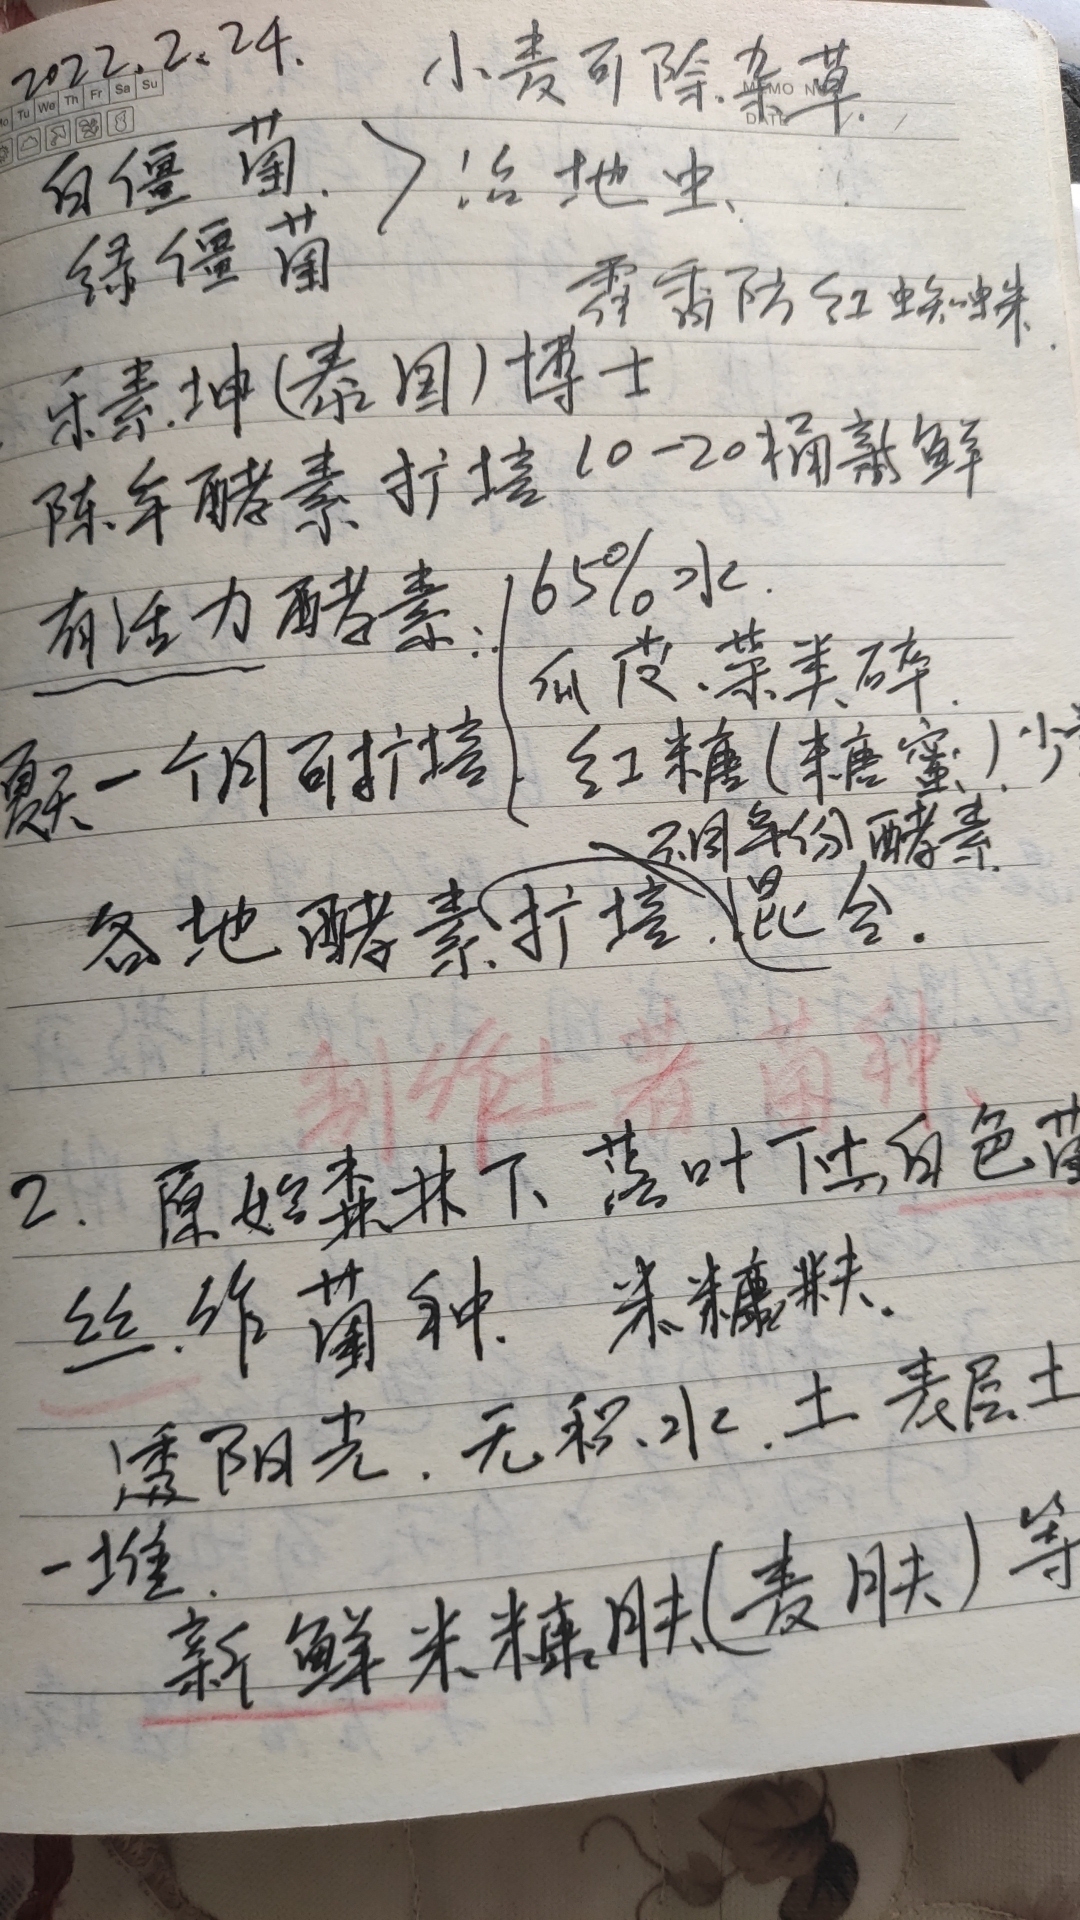 2022.2.24.
小麦可除杂草.
MEMO NO
DATE
Mo Tu We Th Fr Sa Su
白僵菌.
> 治地虫、
绿僵菌
防红蜘蛛.
乐素.坤(泰国)博士
陈年酵素扩培10-20桶新鲜
有活力酵素: 65%水.
瓜皮、菜类碎.
夏天一个月可扩培 红糖(糖蜜).少
不同年份酵素
各地酵素扩培.混合.
制作土著菌种、
2. 原始森林下、落叶下 白色菌
丝.作菌种. 米糠麸.
透阳光.无积水.土表层土
一堆.
新鲜米糠肤(麦肤)等